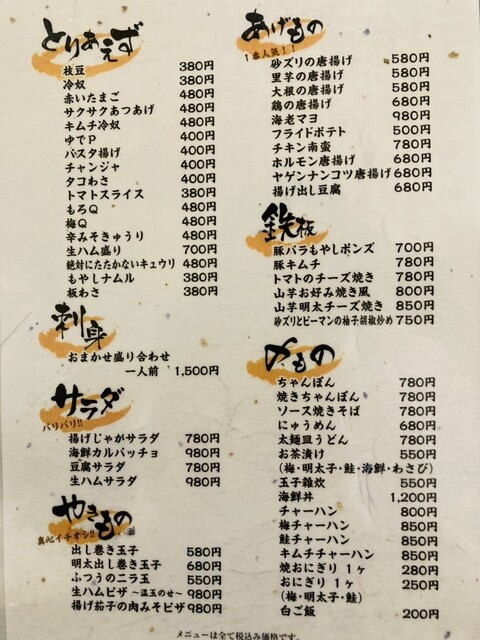 とりあえず
枝豆 380円
冷奴 380円
赤いたまご 480円
サクサクあつあげ 480円
キムチ冷奴 480円
ゆでP 400円
パスタ揚げ 400円
チャンジャ 400円
タコわさ 400円
トマトスライス 380円
もろQ 480円
梅Q 480円
辛みそきゅうり 480円
生ハム盛り 700円
絶対にたたかないキュウリ 480円
もやしナムル 380円
板わさ 380円
刺身
おまかせ盛り合わせ
一人前 1,500円
サラダ
バリバリ!!
揚げじゃがサラダ 780円
海鮮カルパッチョ 980円
豆腐サラダ 780円
生ハムサラダ 980円
やきもの
真心イチオシ!!
出し巻き玉子 580円
明太出し巻き玉子 680円
ふつうのニラ玉 550円
生ハムピザ ～温玉のせ～ 980円
揚げ茄子の肉みそピザ 980円
あげもの
1番人気！！
砂ズリの唐揚げ 580円
里芋の唐揚げ 580円
大根の唐揚げ 580円
鶏の唐揚げ 680円
海老マヨ 980円
フライドポテト 500円
チキン南蛮 780円
ホルモン唐揚げ 680円
ヤゲンナンコツ唐揚げ 680円
揚げ出し豆腐 680円
鉄板
豚バラもやしポンズ 700円
豚キムチ 780円
トマトのチーズ焼き 780円
山芋お好み焼き風 800円
山芋明太チーズ焼き 850円
砂ズリとピーマンの柚子胡椒炒め 750円
〆もの
ちゃんぽん 780円
焼きちゃんぽん 780円
ソース焼きそば 780円
にゅうめん 680円
太麺皿うどん 780円
お茶漬け 550円
(梅・明太子・鮭・海鮮・わさび)
玉子雑炊 550円
海鮮丼 1,200円
チャーハン 800円
梅チャーハン 850円
鮭チャーハン 850円
キムチチャーハン 850円
焼おにぎり 1ヶ 280円
おにぎり 1ヶ 250円
(梅・明太子・鮭)
白ご飯 200円
メニューは全て税込み価格です。